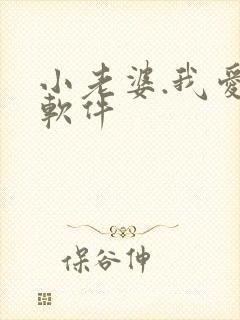 小老婆.我愛
軟件
保谷伸